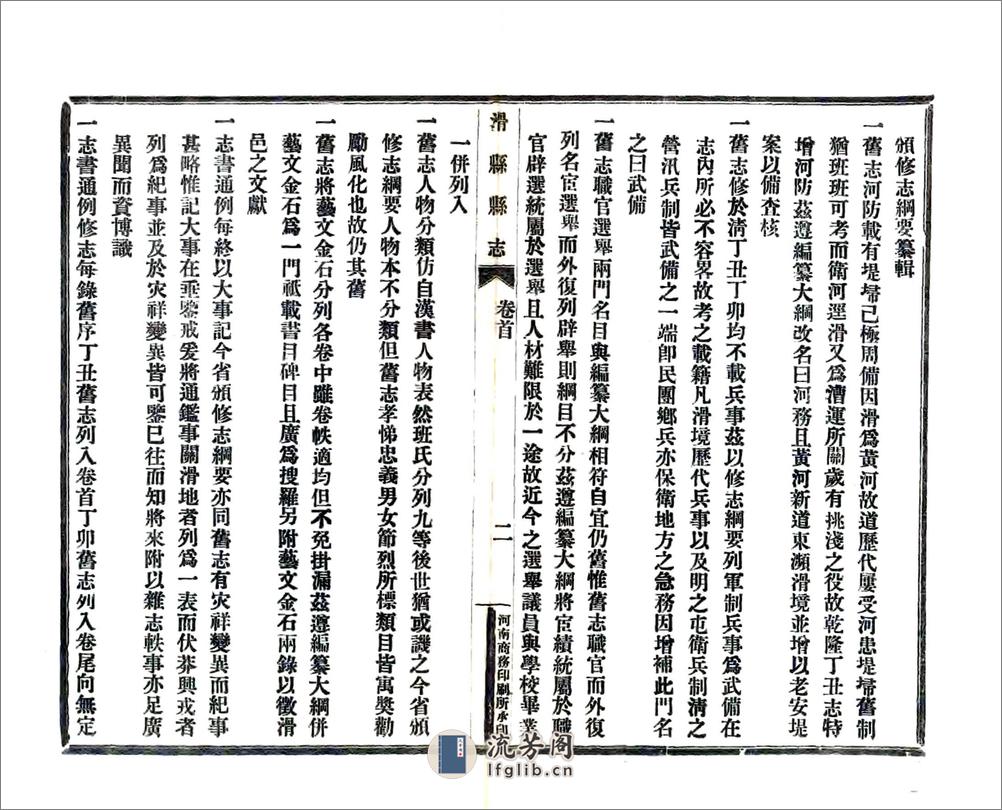 頒修志綱要纂輯
一舊志河防載有堤埽已極周備因滑爲黃河故道歷代屢受河患堤埽舊制
猶班班可考而衛河逕滑又爲漕運所關歲有挑淺之役故乾隆丁丑志特
增河防茲遵編纂大綱改名曰河務且黃河新道東瀕滑境並增以老安堤
案以備查核
一舊志修於淸丁丑丁卯均不載兵事茲以修志綱要列軍制兵事爲武備在
志內所必不容畧故考之載籍凡滑境歷代兵事以及明之屯衛兵制淸之
營汛兵制皆武備之一端卽民團鄉兵亦保衛地方之急務因增補此門名
之曰武備
一舊志職官選舉兩門名目與編纂大綱相符自宜仍舊惟舊志職官而外復
列名宦選舉而外復列辟舉則綱目不分茲遵編纂大綱將宦績統屬於職
官辟選統屬於選舉且人材難限於一途故近今之選舉議員與學校畢業
滑縣縣志
卷首
二
河南商務印刷所承印
一併列入
一舊志人物分類仿自漢書人物表然班氏分列九等後世猶或譏之今省頒
修志綱要人物本不分類但舊志孝悌忠義男女節烈所標類目皆寓獎勸
勵風化也故仍其舊
一舊志將藝文金石分列各卷中雖卷帙適均但不免掛漏茲遵編纂大綱併
藝文金石爲一門祗載書目碑目且廣爲搜羅另附藝文金石兩錄以徵滑
邑之文獻
一志書通例每終以大事記今省頒修志綱要亦同舊志有灾祥變異而紀事
甚略惟記大事在垂鑒戒爰將通鑑事關滑地者列爲一表而伏莽興戎者
列爲紀事並及於灾祥變異皆可鑒已往而知將來附以雜志軼事亦足廣
異聞而資博識
一志書通例修志每錄舊序丁丑舊志列入卷首丁卯舊志列入卷尾向無定
流芳阁
lfglib.cn